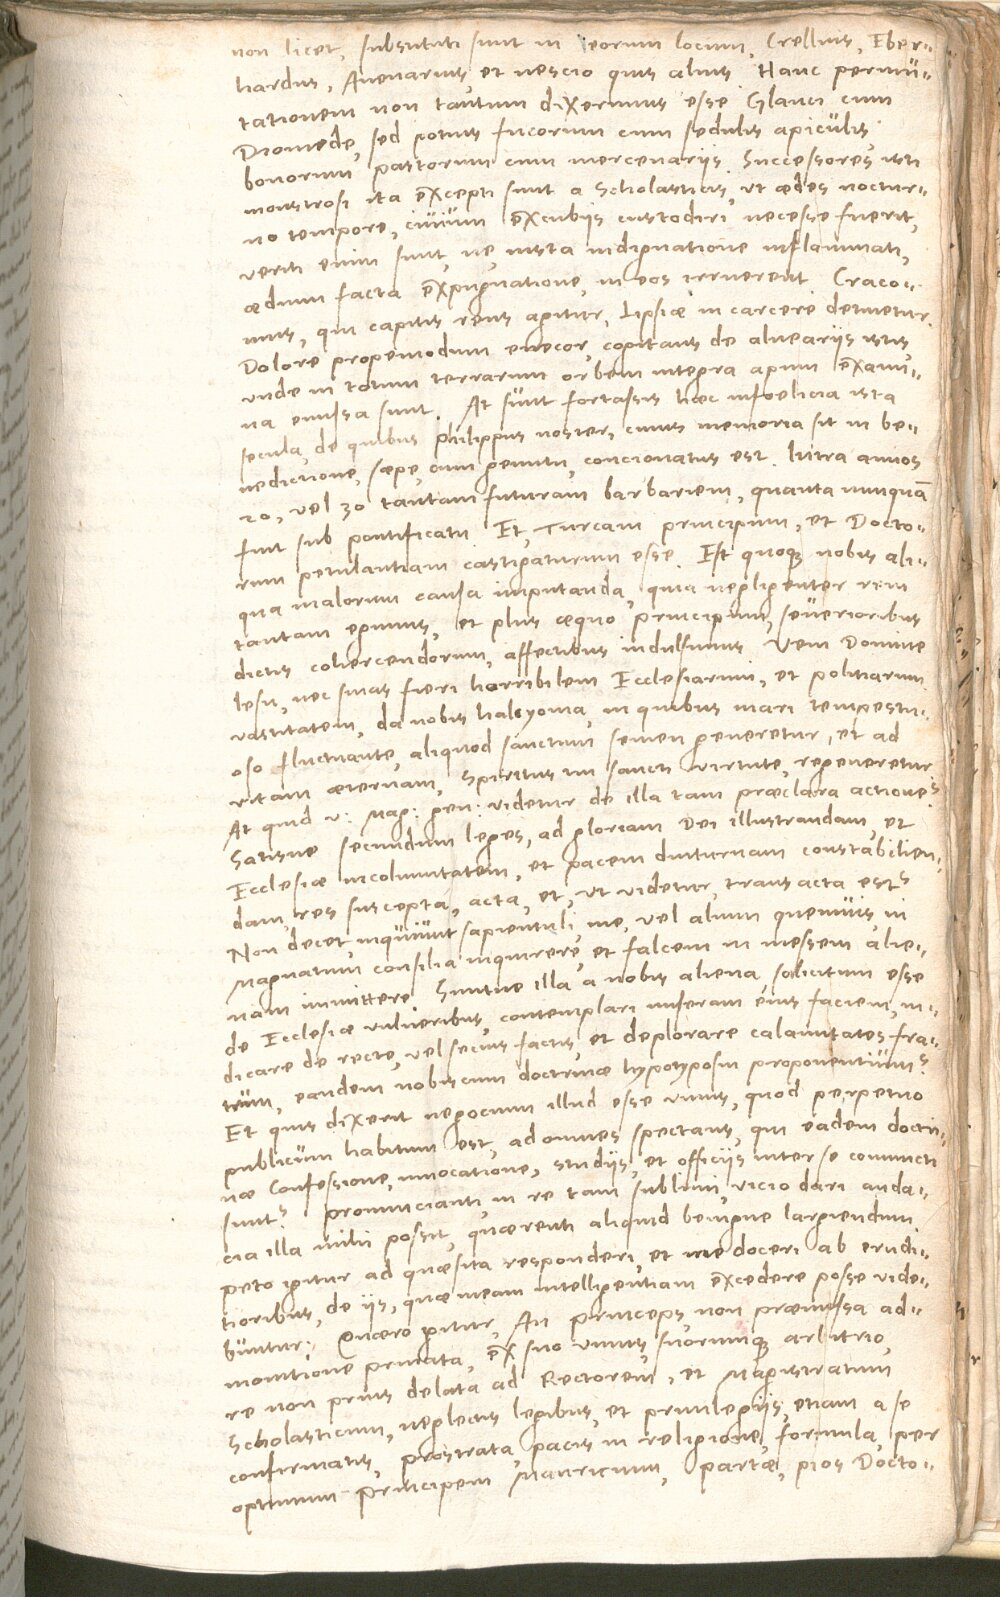 non licet, substituti sunt in eorum locum, Crellius, Eber-
hardus, Avenarius, et nescio quis alius. Hanc permu-
tationem non tantum dixerimus esse Glauci cum
Diomede, sed potius fucorum cum sedulis apiculis,
bonorum pastorum cum mercenariis. Successores isti
monstrosi ita excepti sunt a Scholasticis, ut ædes noctur-
no tempore, civium excubijs custodiri necesse fuerit,
veriti enim sunt, ne, iusta indignatione inflammati,
ædium facta expugnatione, in eos irruerent. Craco-
uius, qui capitis reus agitur, Lipsiæ in carcere detinetur.
Dolore propemodum enecor, cogitans de alueariis istis,
unde in totum terrarum orbem integra apum exami-
na emissa sunt. At sunt fortassis hæc infoelicia ista
secula, de quibus Philippus noster, cuius memoria sit in be-
nedictione, sæpe, cum gemitu, concionatus est. Intra annos
20, vel 30 tantam futuram barbariem, quanta nunquã
fuit sub pontificatu. Et, Turcam principum, et Docto-
rum petulantiam castigaturum esse. Est quoq; nobis ali-
qua malorum causa imputanda, quia negligenter rem
tantam egimus, et plus æquo principium, seuerioribus
dictis cohercendorum, affectibus indulsimus. Veni Domine
Iesu, nec sinas fieri horribilem Ecclesiarum, et politiarum
vastitatem, da nobis halcyonia, in quibus mari tempestu-
oso fluctuante, aliquod sanctum semen generetur, et ad
vitam æternam, Spiritus tui sancti virtute, regeneretur.
At quid v: Mag: gen: videtur de illa tam præclara actione?
Satisne secundum leges, ad gloriam Dei illustrandam, et
Ecclesiæ incolumitatem, et pacem diuturnam constabilien-
dam, res suscepta, acta, et, ut videtur, transacta est?
Non decet, inquiunt sapientuli, me, vel alium quemuis, in
Magnatum consilia inquirere, et falcem in messem alie-
nam immittere. Suntne illa a nobis aliena, solicitum esse
de Ecclesiæ vulneribus, contemplari miseram eius faciem, iu-
dicare de recte, vel secus factis, et deplorare calamitates fra-
trum, eandem nobiscum doctrinæ hypotyposin proponentium?
Et quis dixerit negocium illud esse unius, quod perpetuo
publicum habitum est, ad omnes spectans, qui eadem doctri-
næ Confessione, inuocatione, studijs, et officijs inter se coniuncti
sunt? Pronuncianti, in re tam sublimi, vicio dari auda-
cia illa mihi possit, quærenti aliquid benigne largiendum.
Peto igitur ad quæsita responderi, et me doceri ab erudi-
tioribus, de ijs, quæ meam intelligentiam excedere posse vide-
buntur. Quæro igitur, An princeps, non præmissa ad-
monitione priuata, ex suo unius, suorumq; arbitrio,
re non prius delata ad Rectorem, et Magistratum
Scholasticum, neglectis legibus, et priuilegijs, etiam a se
confirmatis, prostrata, pacis in religione, formula, per
optimum principem Mauricium, partæ, pios Docto-